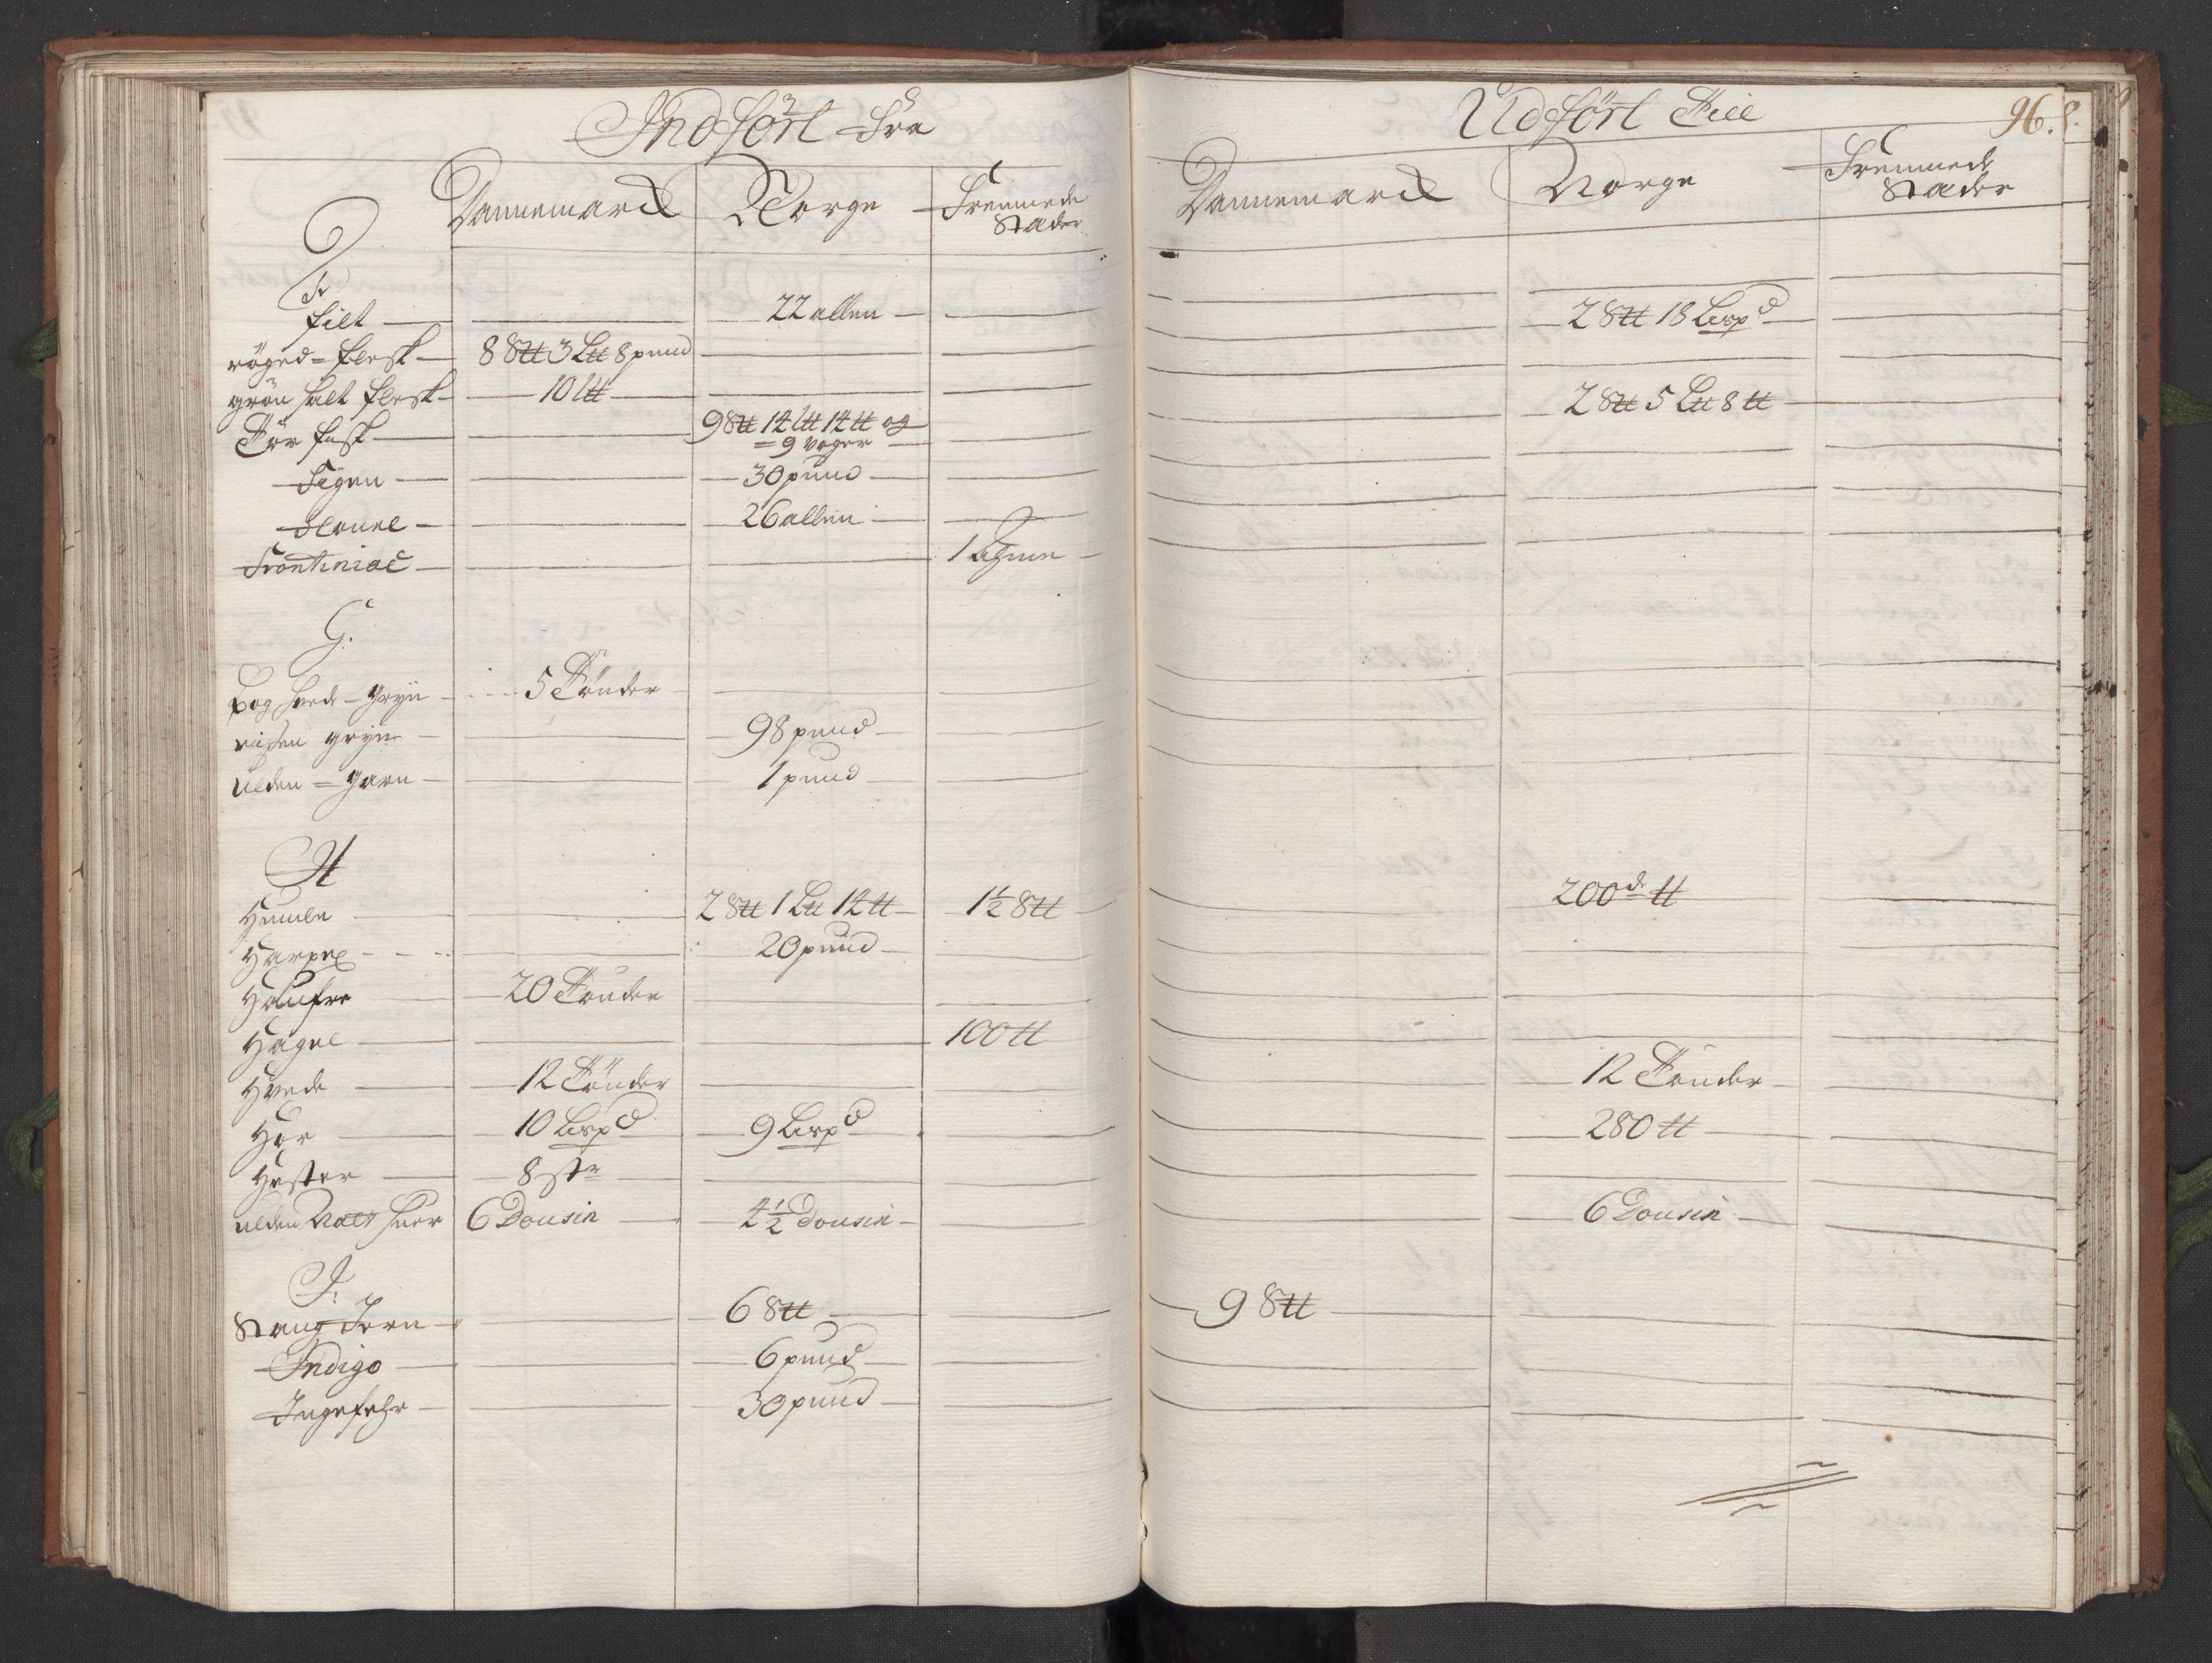 Indført Fra
Dannemarck Norge Fremmede Stæder
F
Filt 22 allen
røged=flesk 8 S℔ 3 L℔ 8 pund
grøn salt flesk 10 L℔
Tør fisk 9 S℔ 14 L℔ 14 ℔ og
= 9 voger
Figen 30 pund
Flonel 26 allen
Frontiniac 1 Ahme
G.
Boghvede=Gryn 5 Tønder
riisen gryn 98 pund
ulden=Garn 1 pund
H
Humle 2 S℔ 1 L℔ 14 ℔ 1½ S℔
Harpex 20 pund
Hampfrø 20 Tønder
Hagel 100 ℔
Hvede 12 Tønder
Hør 10 Lisp^d 9 Lisp^d
Hester 8 st^r
ulden Hatter 6 Dousin 4½ Dousin
J.
Stang Jern 6 S℔
Indigo 6 pund
Ingefehr 30 pund
Udført Till
96.
Dannemarck Norge Fremmede Stæder
2 S℔ 18 Lisp^d
2 S℔ 5 L℔ 8 ℔
200^de ℔
12 Tønder
280 ℔
6 Dousin
9 S℔